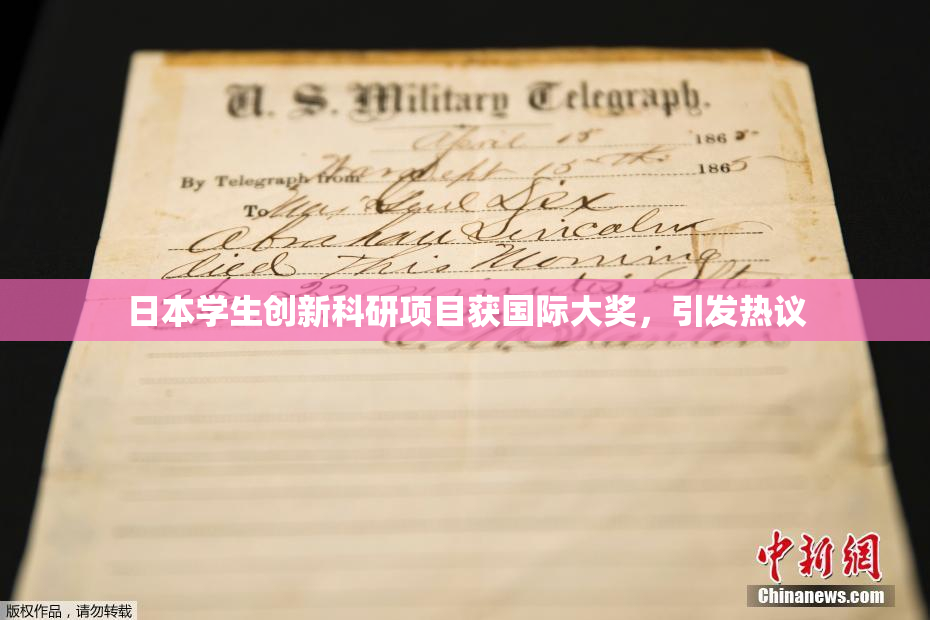 U. S. Military Telegraph.
April 15 1865
By Telegraph from War Dept 15th 1865
To Maj Genl Dix
Abraham Lincoln
died This Morning
at 22 minutes after
日本学生创新科研项目获国际大奖，引发热议
E. M. Stanton
中新网
Chinanews.com
版权作品，请勿转载